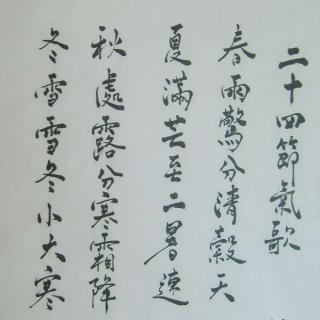 二十四節氣歌
春雨驚分清穀天
夏滿芒至二暑連
秋處露分寒霜降
冬雪雪冬小大寒